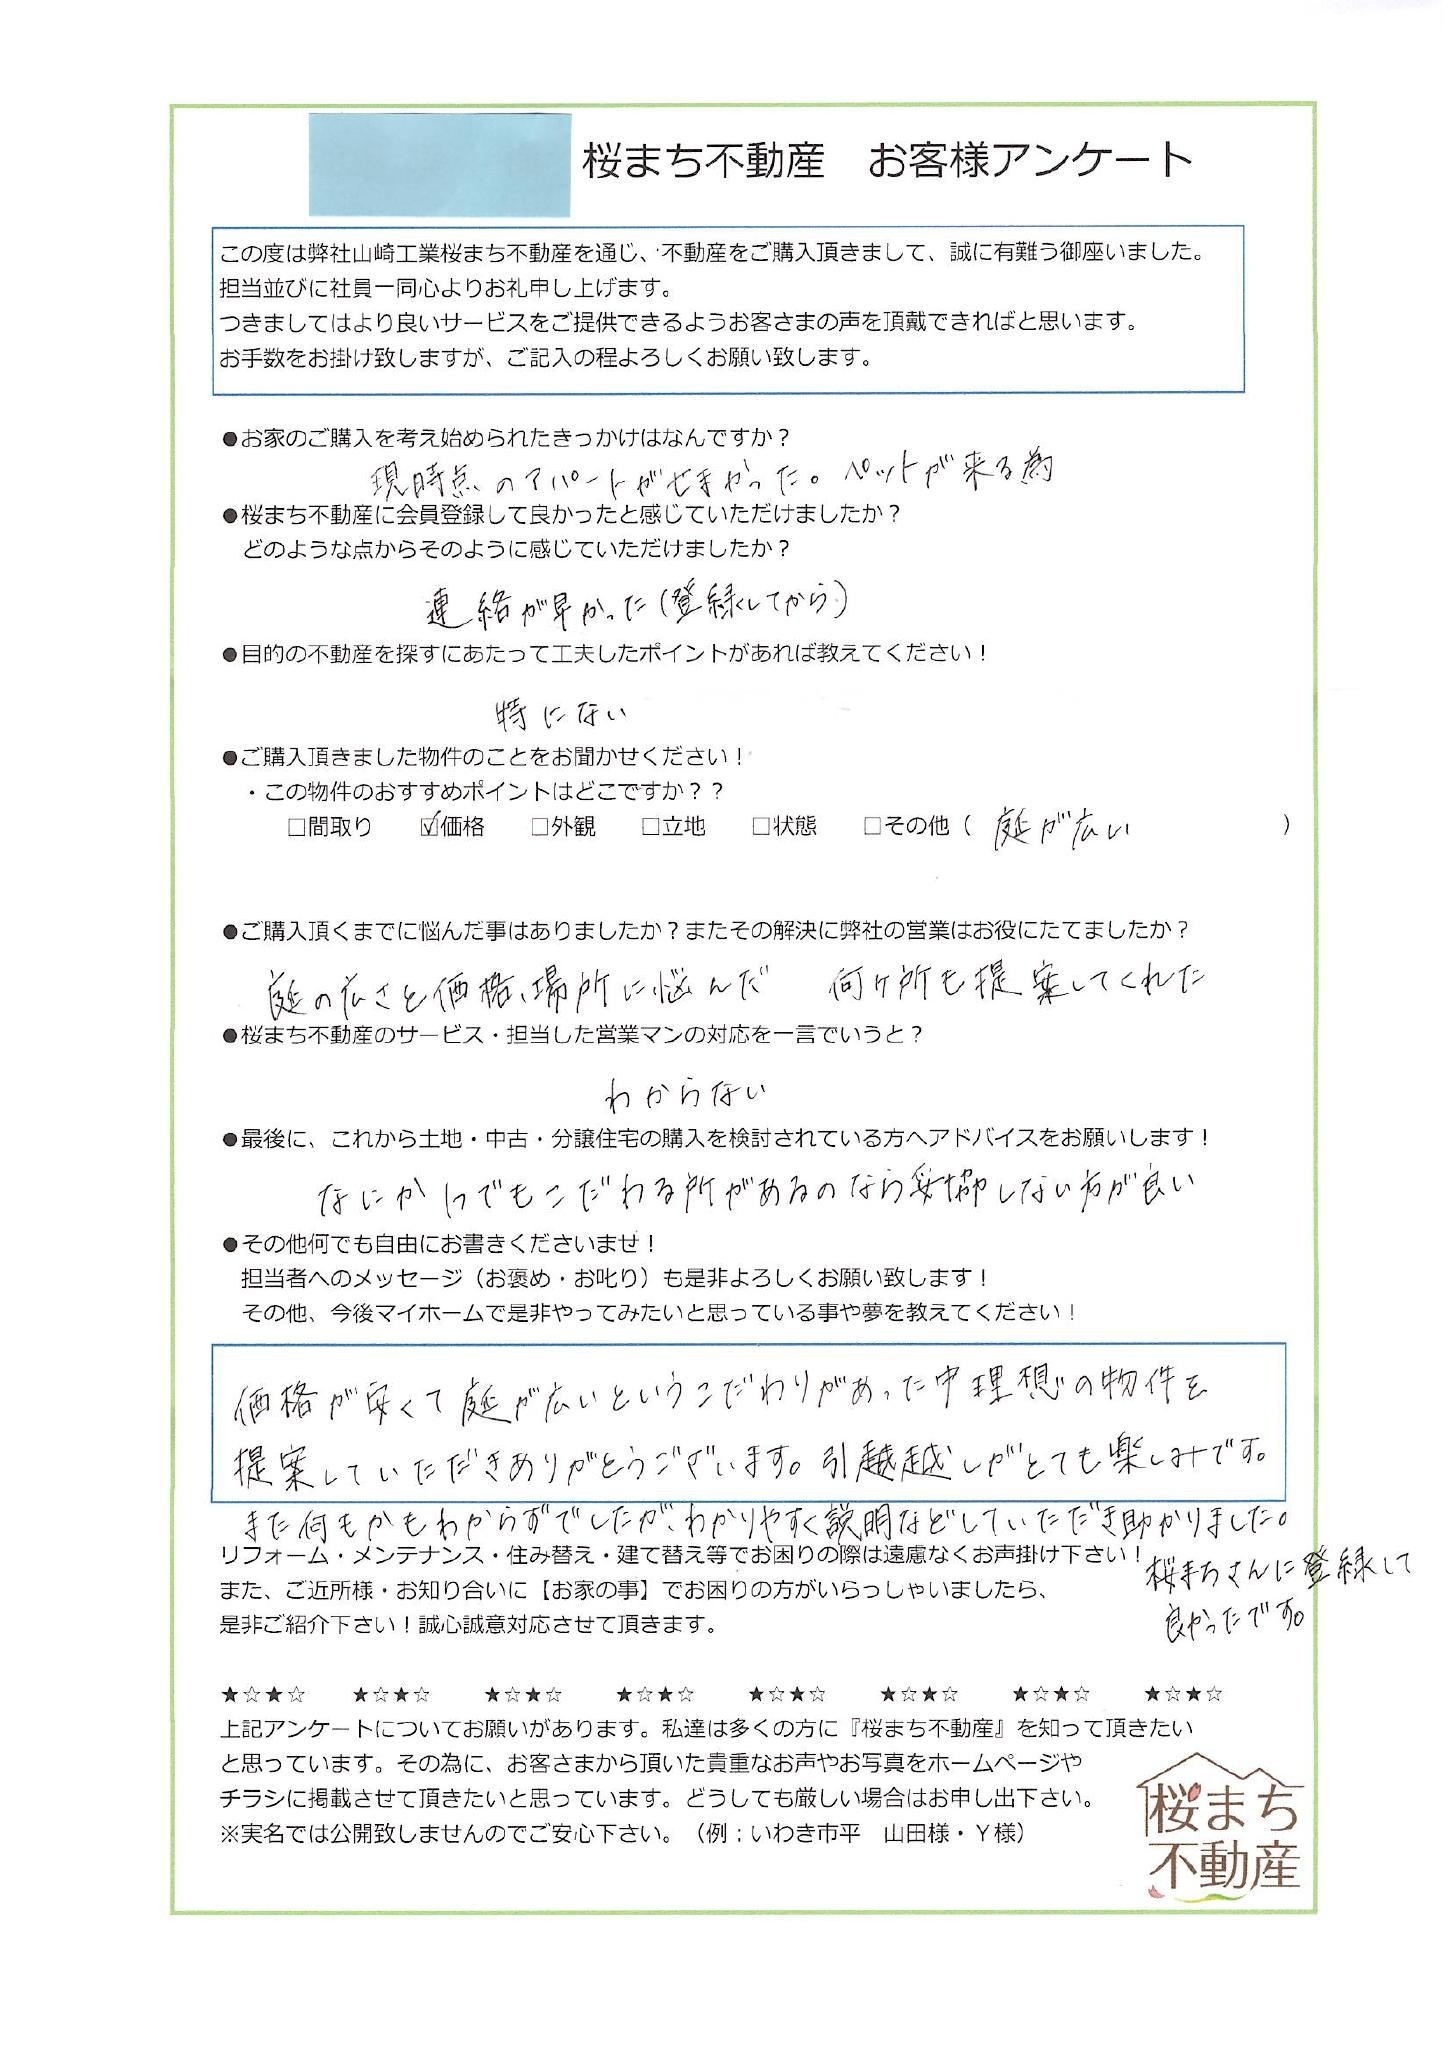 桜まち不動産　お客様アンケート
この度は弊社山崎工業桜まち不動産を通じ、不動産をご購入頂きまして、誠に有難う御座いました。
担当並びに社員一同心よりお礼申し上げます。
つきましてはより良いサービスをご提供できるようお客さまの声を頂戴できればと思います。
お手数をお掛け致しますが、ご記入の程よろしくお願い致します。
●お家のご購入を考え始められたきっかけはなんですか？
現時点のアパートがせまかった。ペットが来る為
●桜まち不動産に会員登録して良かったと感じていただけましたか？
どのような点からそのように感じていただけましたか？
連絡が早かった(登録してから)
●目的の不動産を探すにあたって工夫したポイントがあれば教えてください！
特にない
●ご購入頂きました物件のことをお聞かせください！
・この物件のおすすめポイントはどこですか？？
□間取り　☑価格　□外観　□立地　□状態　□その他（ 庭が広い ）
●ご購入頂くまでに悩んだ事はありましたか？またその解決に弊社の営業はお役にたてましたか？
庭の広さと価格、場所に悩んだ　何ヶ所も提案してくれた
●桜まち不動産のサービス・担当した営業マンの対応を一言でいうと？
わからない
●最後に、これから土地・中古・分譲住宅の購入を検討されている方へアドバイスをお願いします！
なにか1つでもこだわる所があるのなら妥協しない方が良い
●その他何でも自由にお書きくださいませ！
担当者へのメッセージ（お褒め・お叱り）も是非よろしくお願い致します！
その他、今後マイホームで是非やってみたいと思っている事や夢を教えてください！
価格が安くて庭が広いというこだわりがあった中理想の物件を
提案していただきありがとうございます。引越越しがとても楽しみです。
また何もかもわからずでしたが、わかりやすく説明などしていただき助かりました。
リフォーム・メンテナンス・住み替え・建て替え等でお困りの際は遠慮なくお声掛け下さい！
桜まちさんに登録して
また、ご近所様・お知り合いに【お家の事】でお困りの方がいらっしゃいましたら、
良かったです。
是非ご紹介下さい！誠心誠意対応させて頂きます。
★☆★☆　★☆★☆　★☆★☆　★☆★☆　★☆★☆　★☆★☆　★☆★☆　★☆★☆
上記アンケートについてお願いがあります。私達は多くの方に『桜まち不動産』を知って頂きたい
と思っています。その為に、お客さまから頂いた貴重なお声やお写真をホームページや
チラシに掲載させて頂きたいと思っています。どうしても厳しい場合はお申し出下さい。
※実名では公開致しませんのでご安心下さい。（例；いわき市平　山田様・Ｙ様）
桜まち
不動産